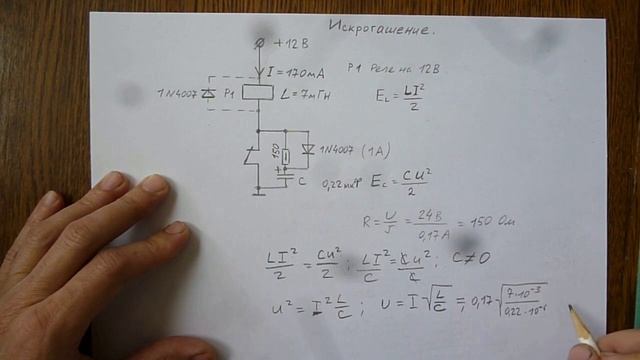 Искрогашение.
+12В
I = 170мА
P1 Реле на 12В
1N4007 P1 L = 7мГн
E_L = LI²/2
150
1N4007 (1А)
+
C 0,22мкФ E_C = CU²/2
R = U/J = 24В/0,17А = 150 Ом
LI²/2 = CU²/2 ; LI²/C = CU²/C ; C ≠ 0
U² = I² L/C ; U = I √(L/C) = 0,17 √(7·10⁻³/0,22·10⁻⁶)